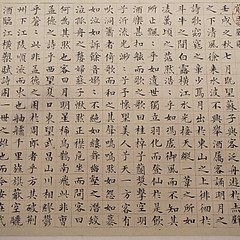 壬戌之秋七月既望蘇子與客泛舟遊於赤壁
之下清風徐來水波不興舉酒屬客誦明月之
詩歌窈窕之章少焉月出於東山之上徘徊於
斗牛之間白露橫江水光接天縱一葦之所如
凌萬頃之茫然浩浩乎如馮虛御風而不知其
所止飄飄乎如遺世獨立羽化而登仙於是飲
酒樂甚扣舷而歌之歌曰桂棹兮蘭槳擊空明
兮泝流光渺渺兮予懷望美人兮天一方客有
吹洞簫者倚歌而和之其聲嗚嗚然如怨如慕
如泣如訴餘音嫋嫋不絕如縷舞幽壑之潛蛟
泣孤舟之嫠婦蘇子愀然正襟危坐而問客曰
何為其然也客曰月明星稀烏鵲南飛此非曹
孟德之詩乎西望夏口東望武昌山川相繆鬱
乎蒼蒼此非孟德之困於周郎者乎方其破荊
州下江陵順流而東也舳艫千里旌旗蔽空釃
酒臨江橫槊賦詩固一世之雄也而今安在哉